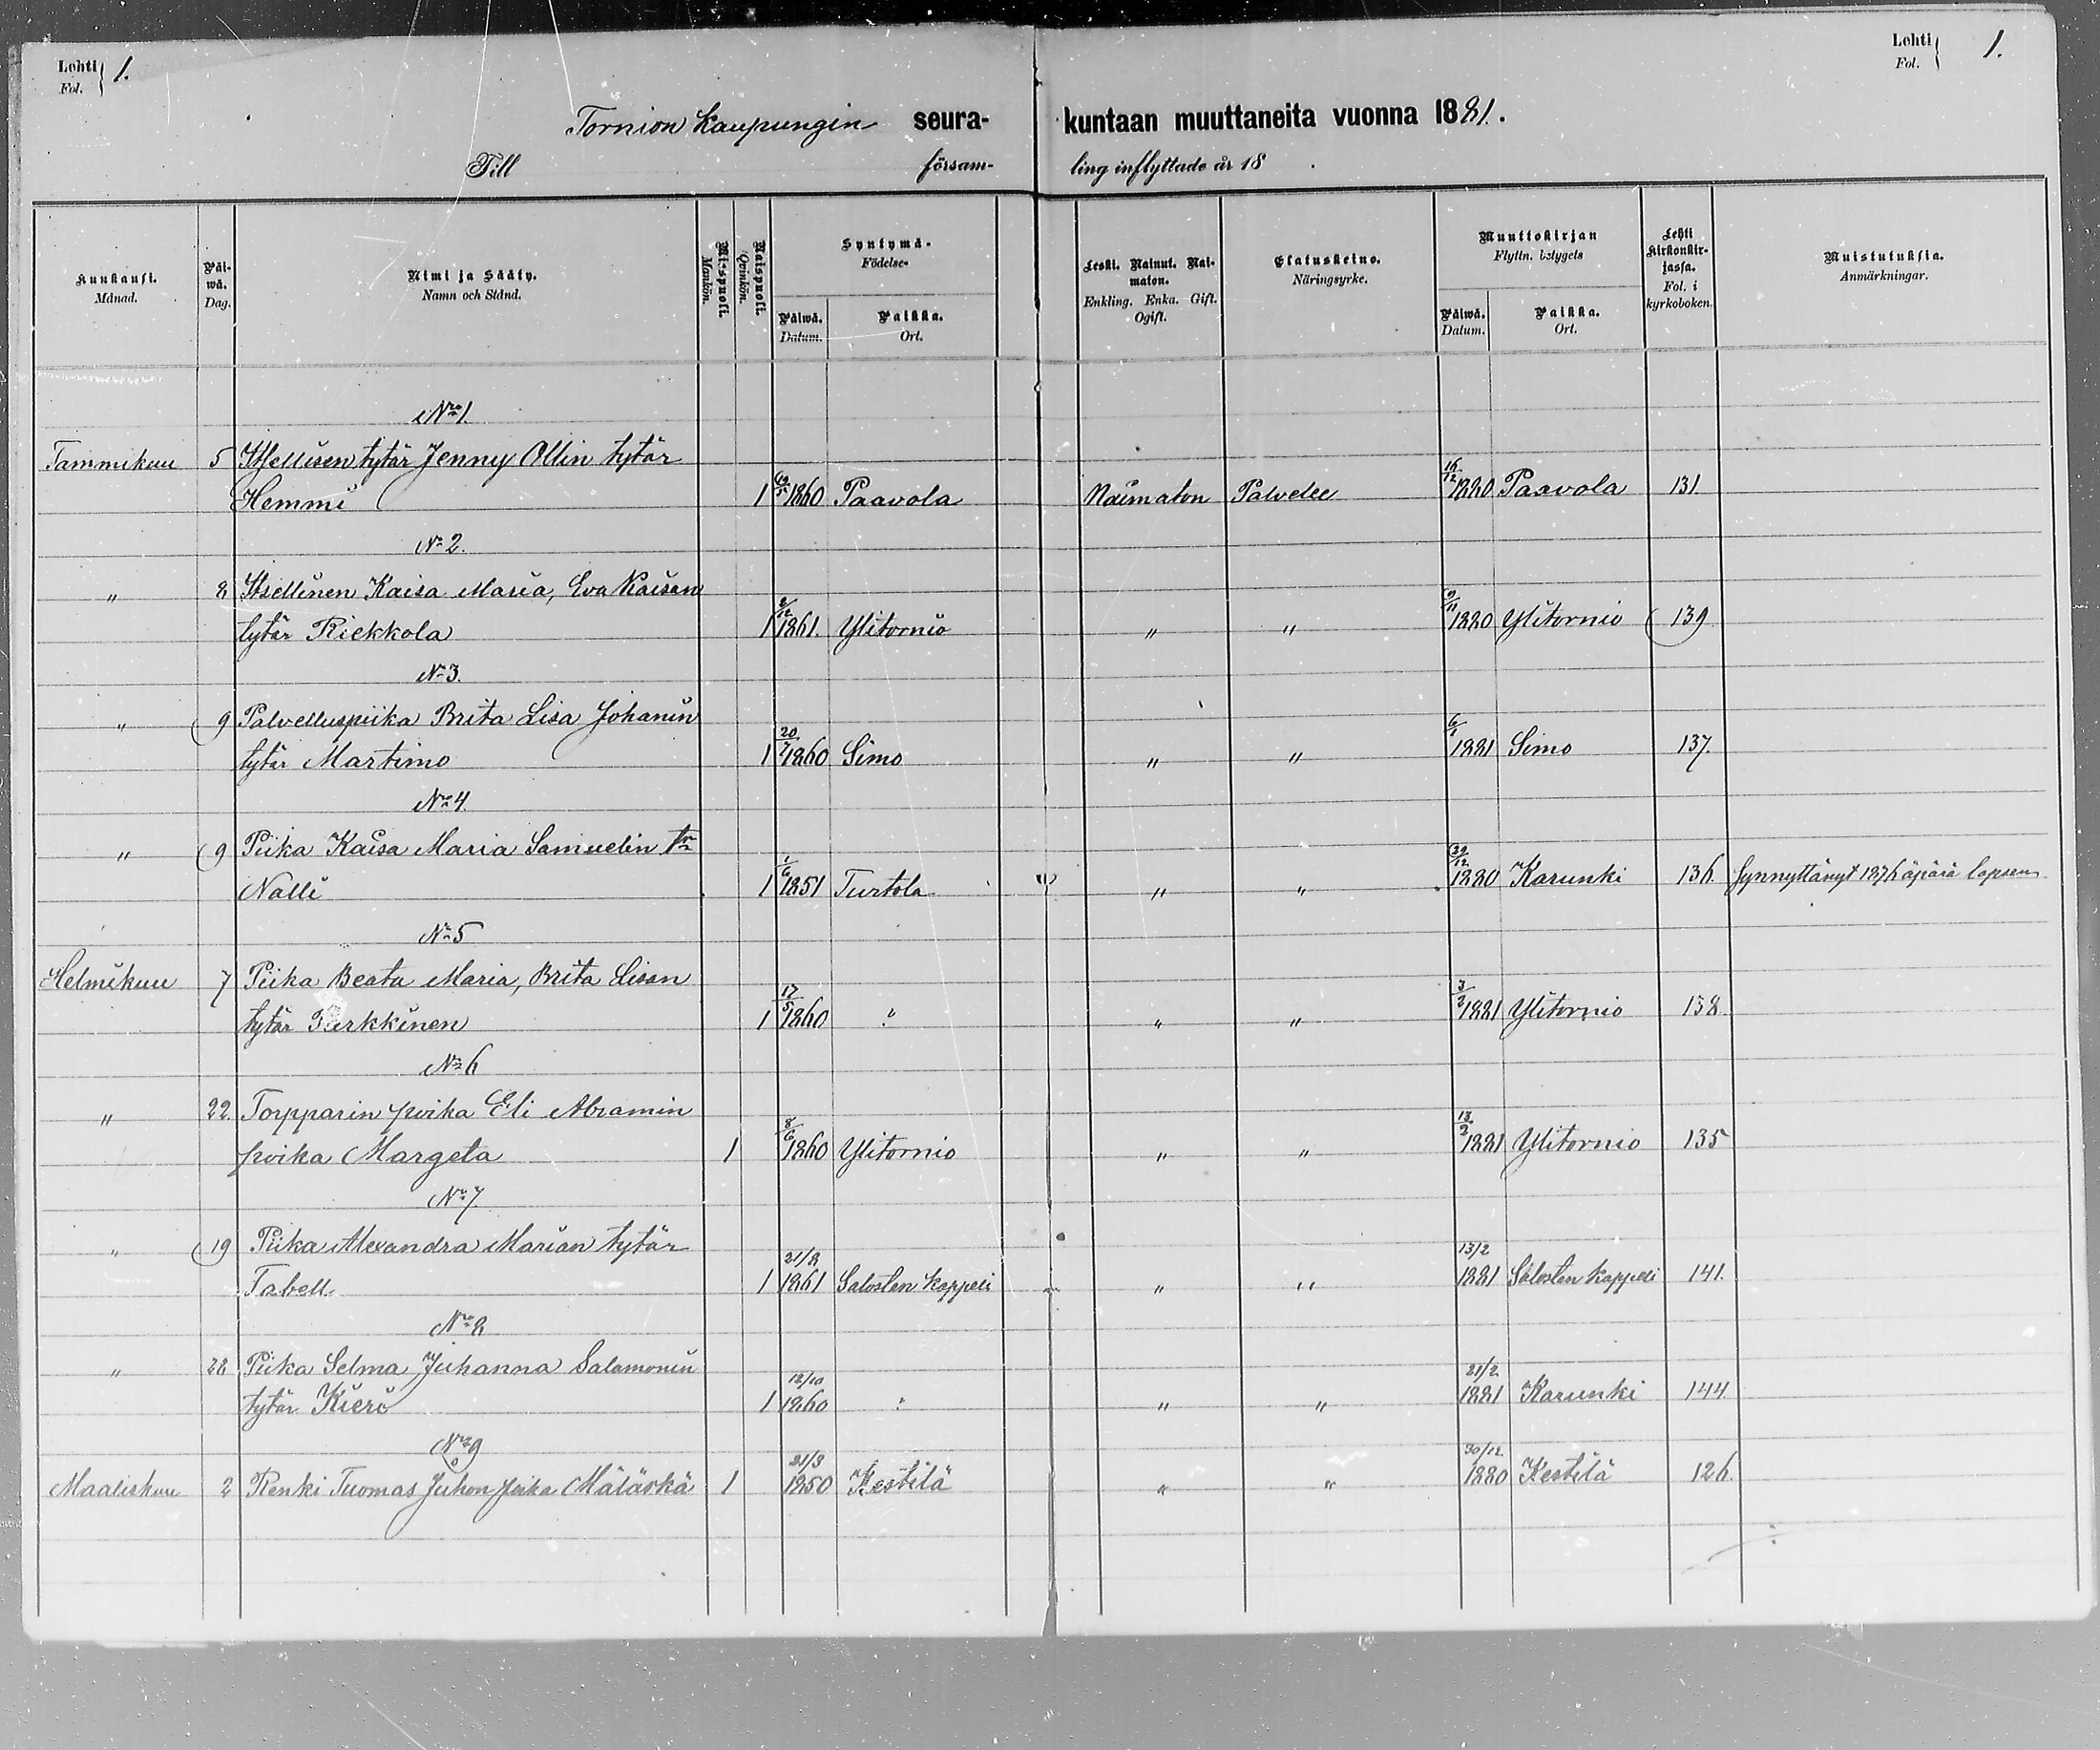 Lehti Fol. 1.
Lehti Fol. 1.
Tornion kaupungin seura- kuntaan muuttaneita vuonna 1881.
Till försam- ling inflyttade år 18 .
Kuukausi. Månad.
Päi- wä. Dag.
Nimi ja Sääty. Namn och Stånd.
Miespuoli. Mankön.
Naispuoli. Qvinkön.
Syntymä- Födelse-
Päiwä. Datum.
Paikka. Ort.
Leski. Nainut. Nai- maton. Enkling. Enka. Gift. Ogift.
Elatuskeino. Näringsyrke.
Muuttokirjan Flyttn. betygets
Päiwä. Datum.
Paikka. Ort.
Lehti Kirkonkir- jassa. Fol. i kyrkoboken.
Muistutuksia. Anmärkningar.
No 1.
Tammikuu 5 Itsellisen tytär Jenny Ollin tytär
Hemmi 1 1860 Paavola Naimaton Palvelee 16/12 1880 Paavola 131.
No 2.
" 8 Itsellinen Kaisa Maria, Eva Kaisan
tytär Riekkola 1 1861. Ylitornio " " 9/11 1880 Ylitornio 139
No 3.
" 9 Palvelluspiika Brita Lisa Johanin
tytär Martimo 1 20/7 1860 Simo " " 6/1 1881 Simo 137.
No 4.
" 9 Piika Kaisa Maria Samuelin tr
Nalli 1 1/6 1851 Turtola " " 1880 Karunki 136 Synnyttänyt 1876 äpärä lapsen
No 5
Helmikuu 7 Piika Beata Maria, Brita Lisan
tytär 1 17/5 1860 " " " 3/2 1881 Ylitornio 138
No 6
" 22. Torpparin poika Eli Abramin
poika Margeta 1 8/6 1860 Ylitornio " " 13/2 1881 Ylitornio 135
No 7.
" 19 Piika Alexandra Marian tytär
Tabell 1 21/8 1861 Salosten kappeli " " 13/2 1881 Salosten kappeli 141.
No 8
" 28 Piika Selma Juhanna Salamonin
tytär Kiero 1 12/10 1860 " " " 21/2 1881 Karunki 144
No 9
Maaliskuu 2 Renki Tuomas Juhon poika Mäläskä 1 21/3 1850 Kestilä " " 30/12 1880 Kestilä 126.